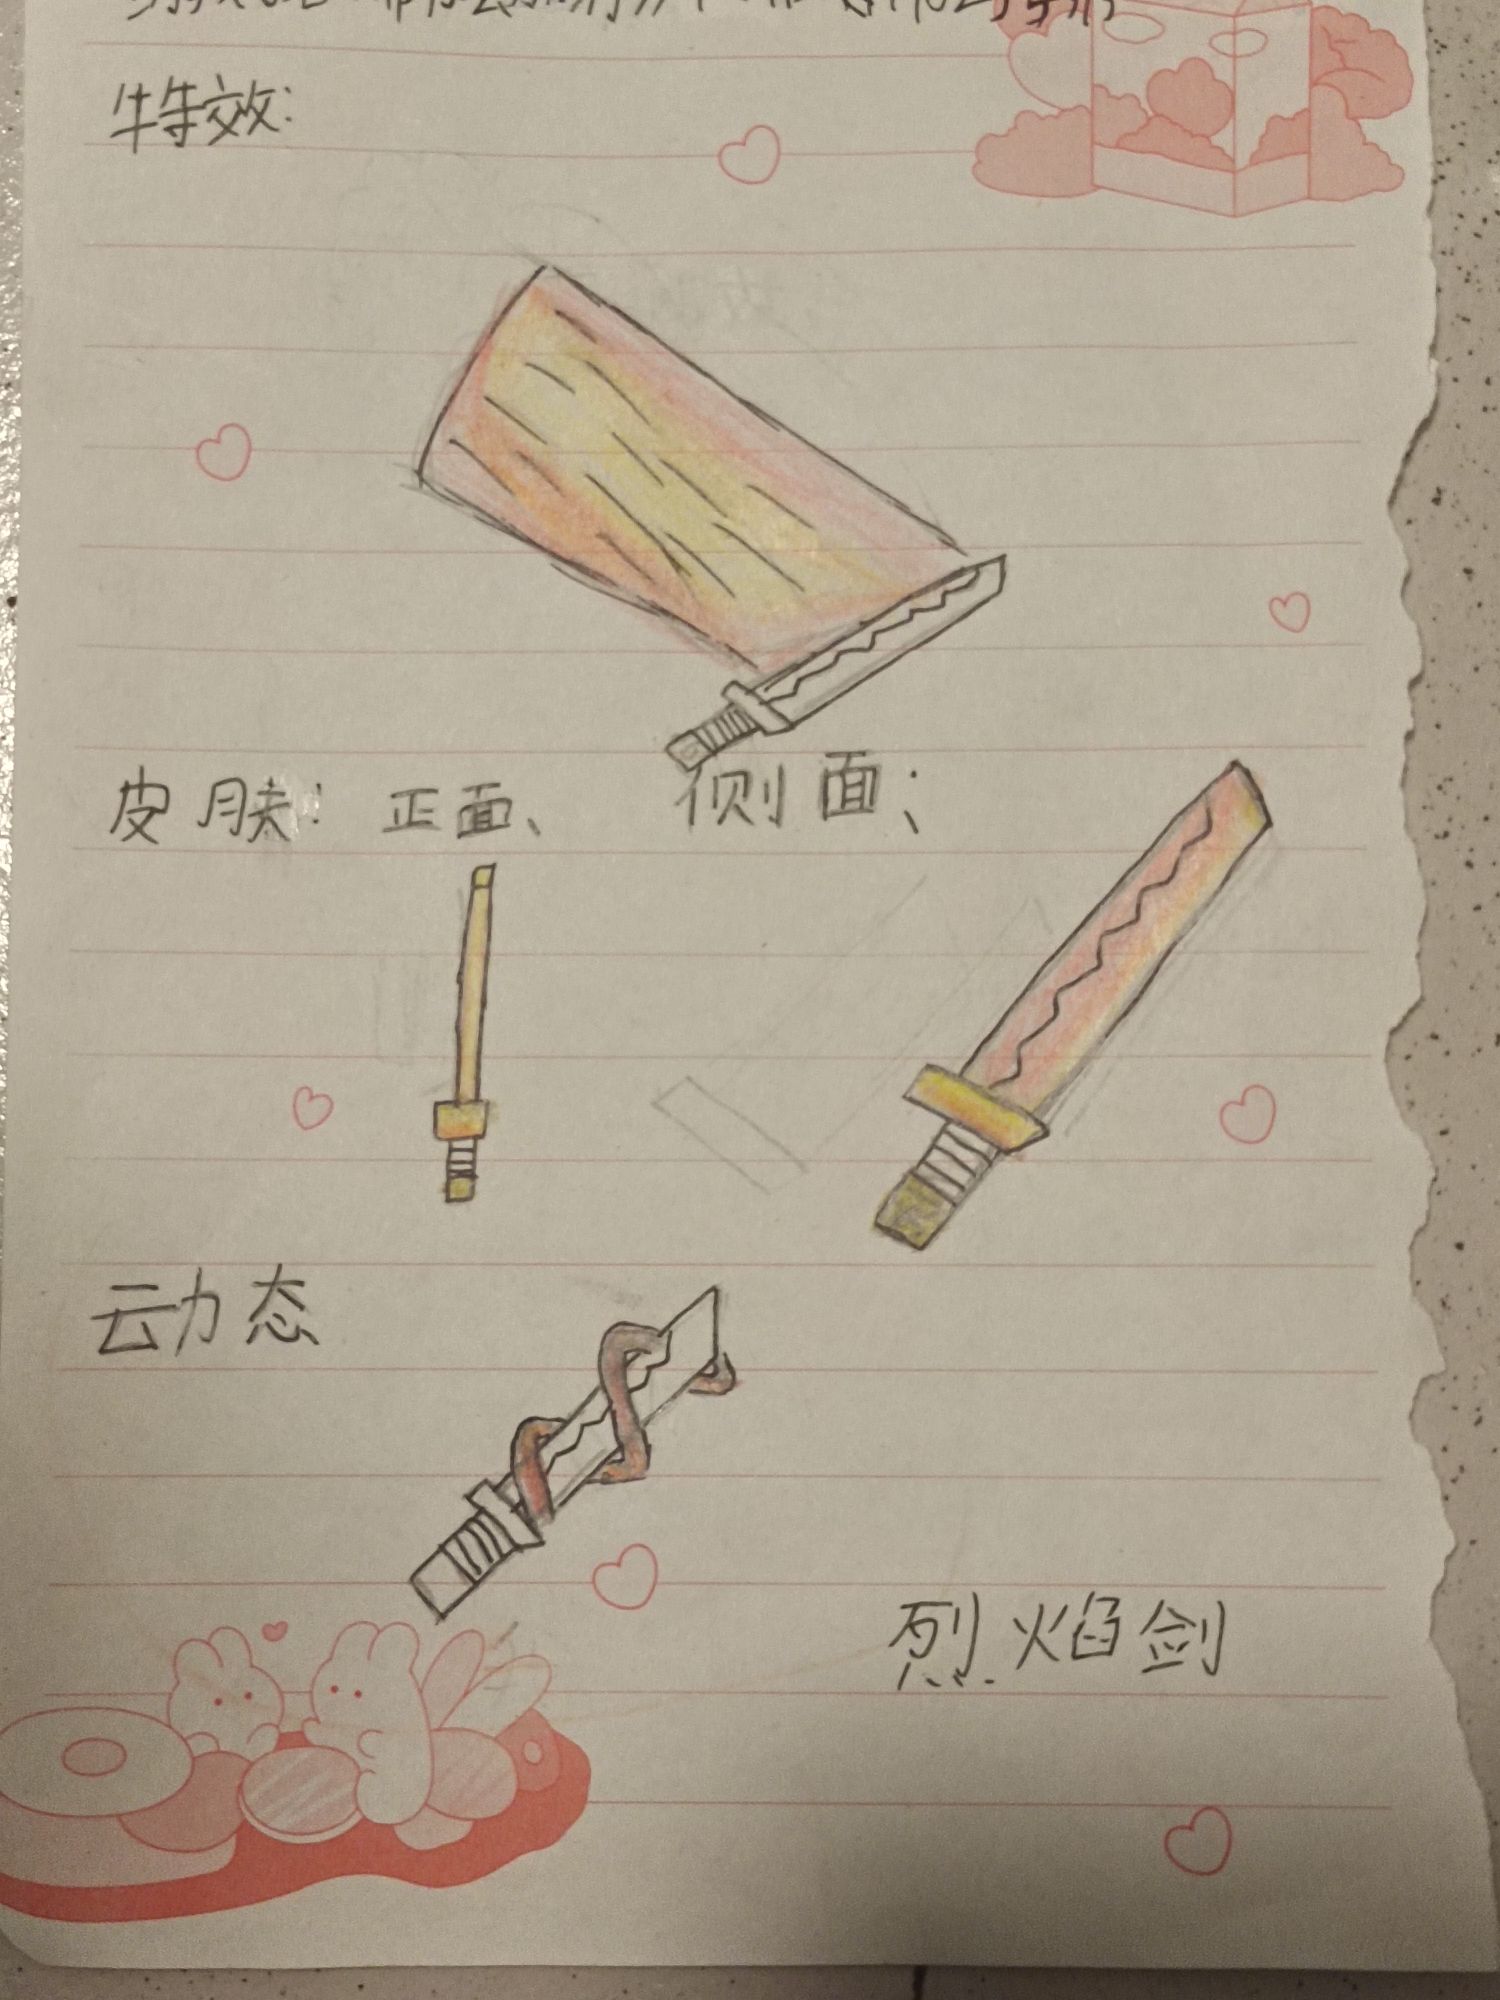 特效:
皮肤: 正面、 侧面:
动态
烈焰剑